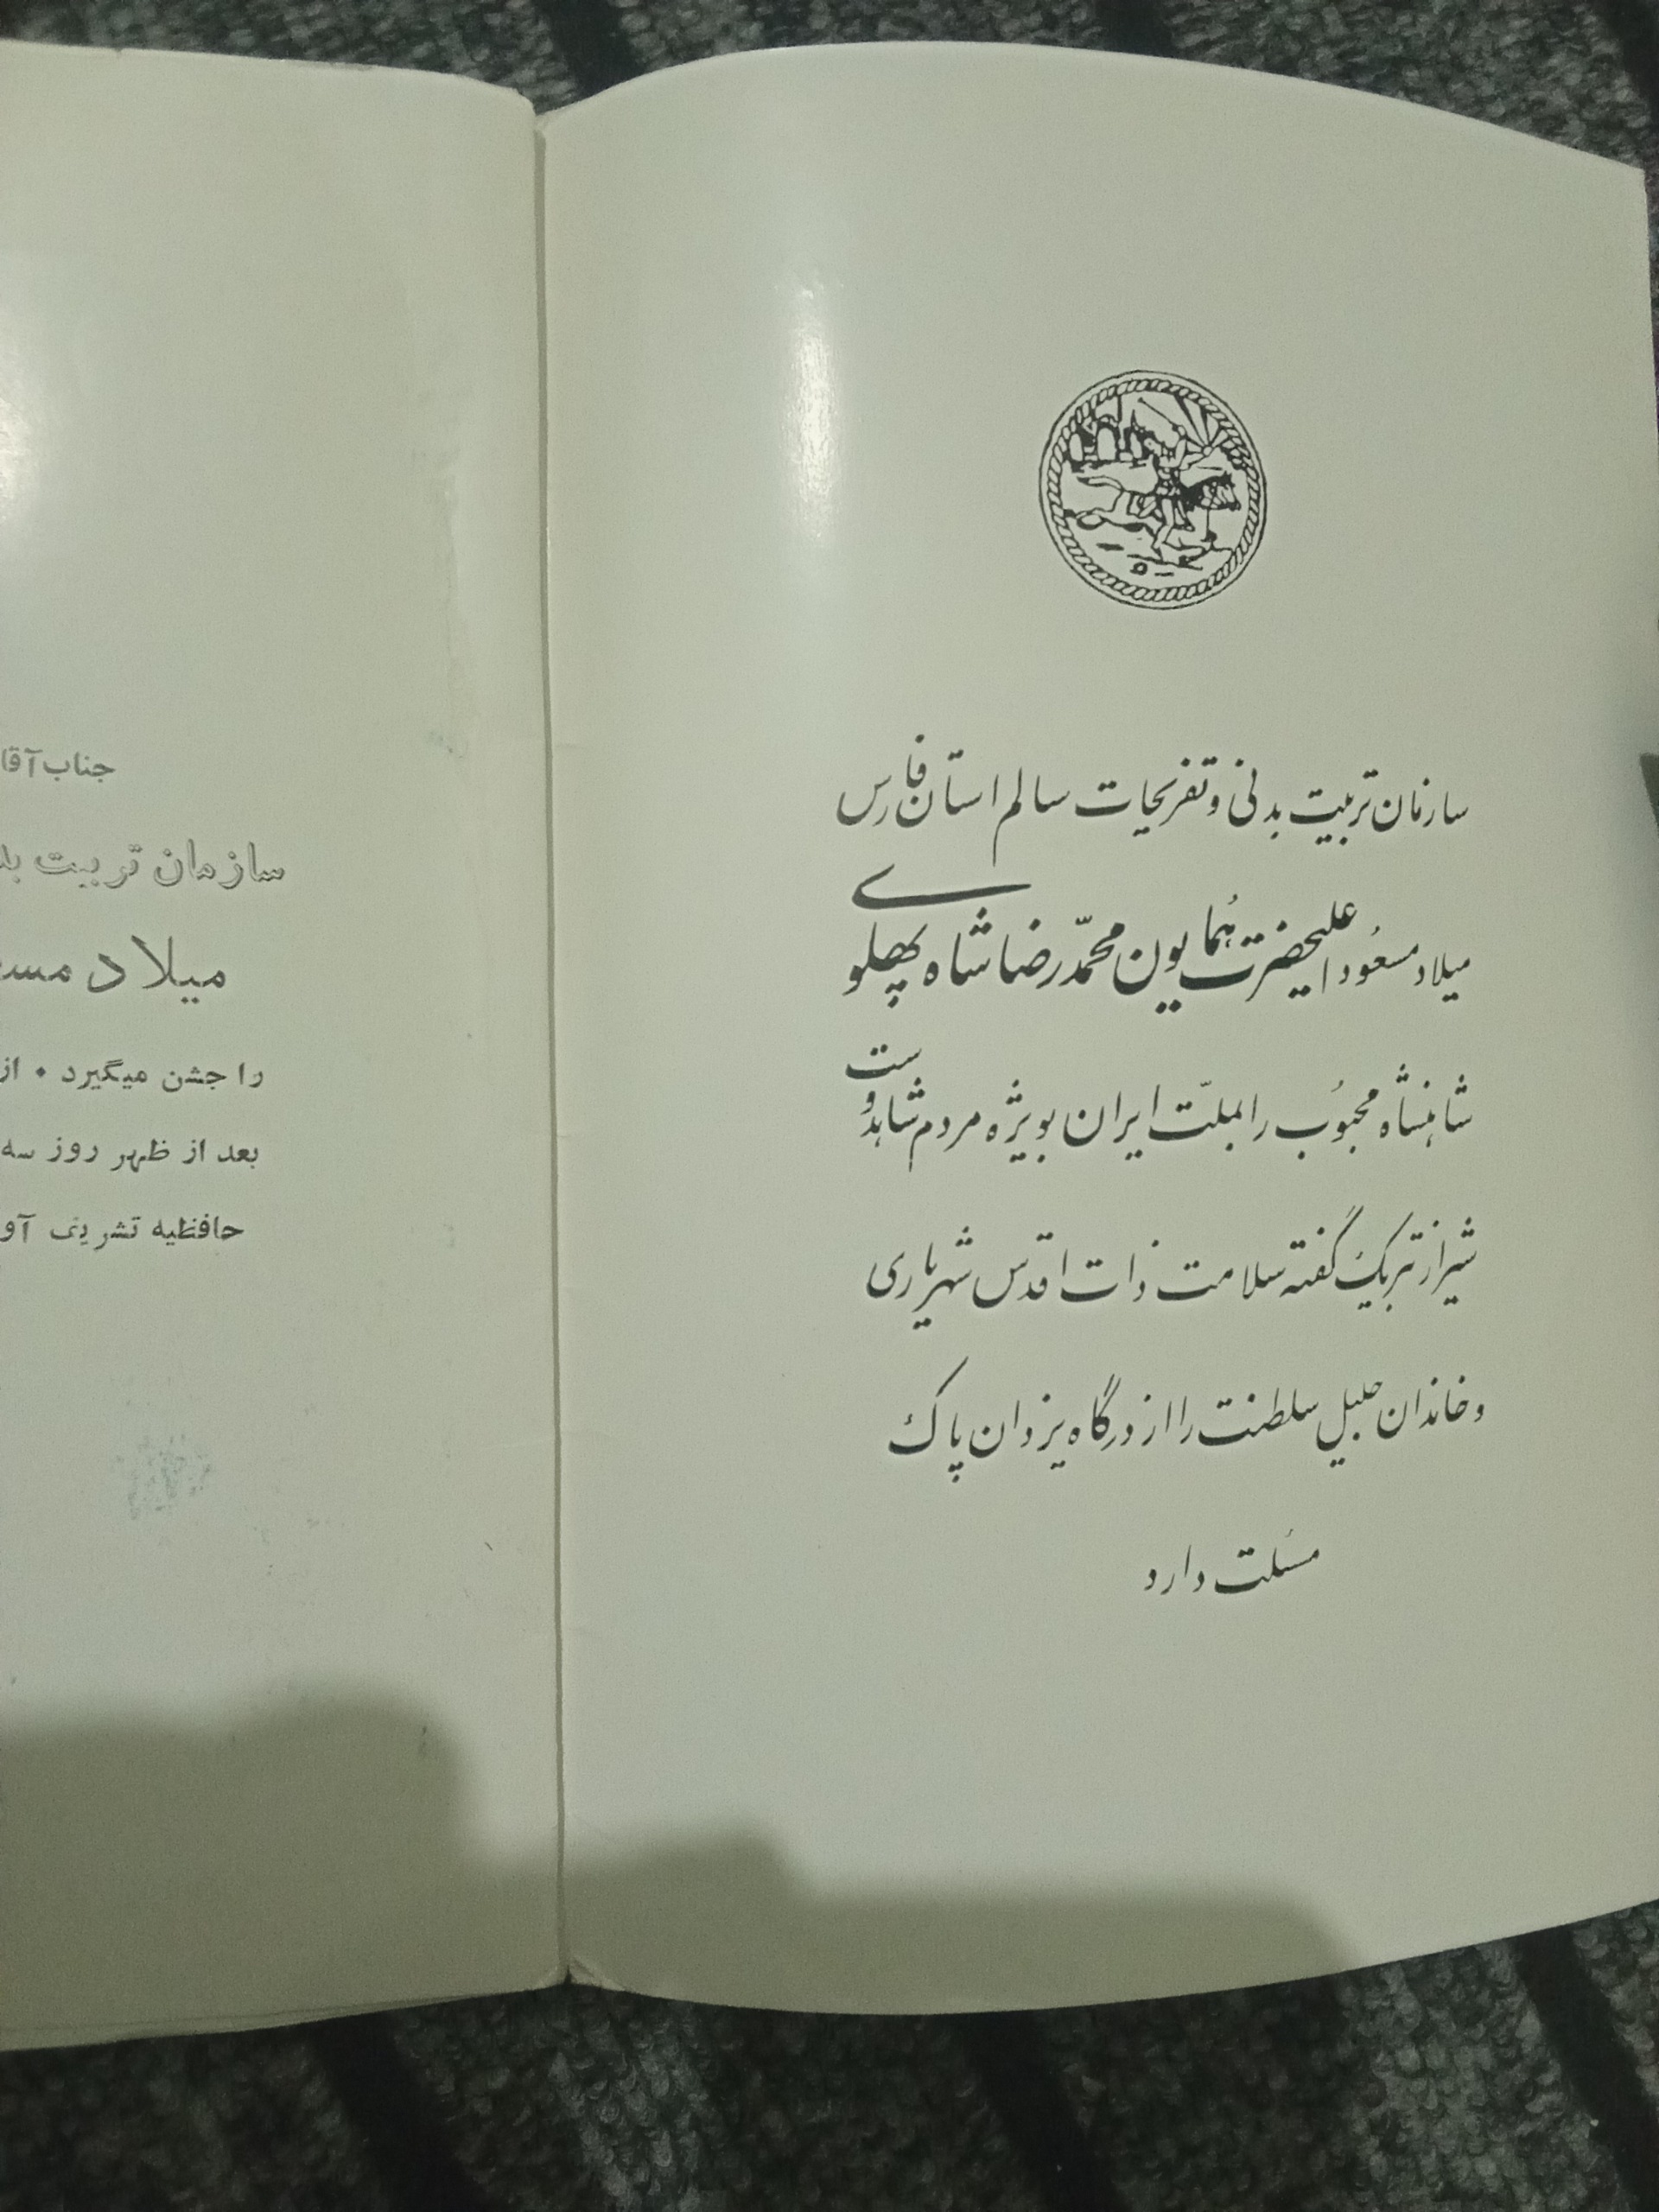 سازمان تربیت بدنی و تفریحات سالم استان فارس
میلاد مسعود اعلیحضرت همایون محمّد رضا شاه پهلوی
شاهنشاه محبُوب را بملّت ایران بویژه مردم شاهدوست
شیراز تبریک گفته سلامت ذات اقدس شهریاری
و خاندان جلیل سلطنت را از درگاه یزدان پاک
مسئلت دارد
جناب آقا
سازمان تربیت بد
میلاد مسع
را جشن میگیرد . از
بعد از ظهر روز سه
حافظیه تشریف آو